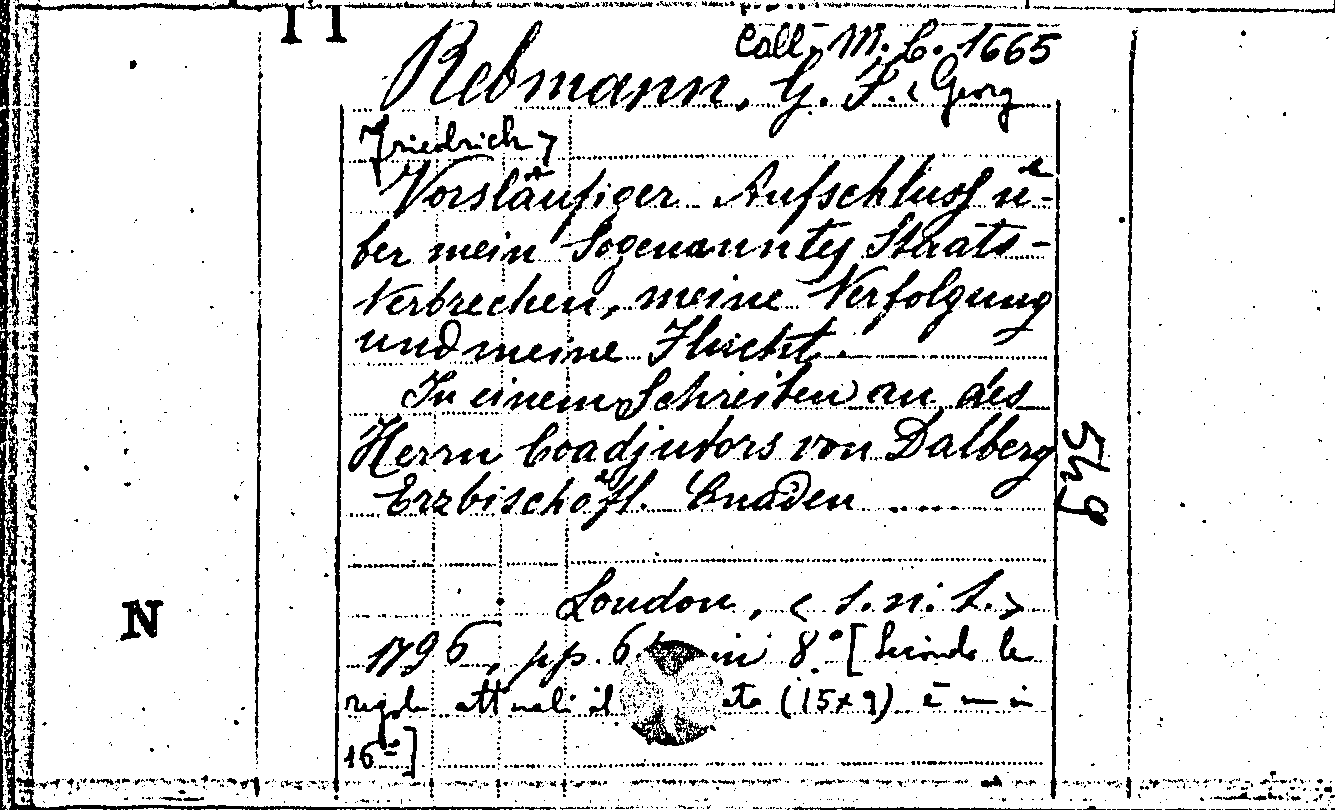 Coll. M. C. 1665
Rebmann, G. F. < Georg
Friedrich >
Vorsläufiger Aufschluss ü-
ber mein Sogenanntes Staats-
Verbrechen, meine Verfolgung
und meine Flucht.
In einem Schreiben an des
Herrn Coadjutors von Dalberg
Erzbischöfl. Gnaden .....
549
London, < s. n. t. >
N
1796, pp. 6 in 8.° [Secondo le
regole attuali il ato (15x9) è un in
16°]